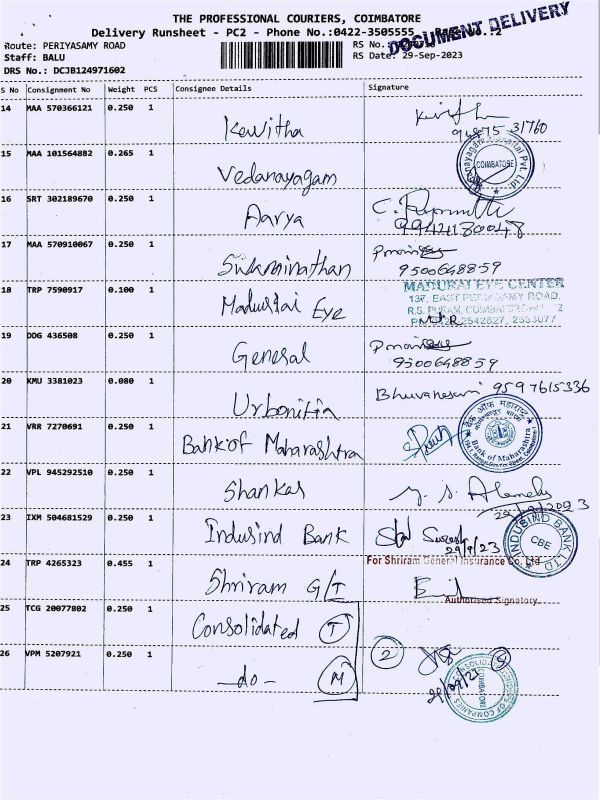 THE PROFESSIONAL COURIERS, COIMBATORE
Delivery Runsheet - PC2 - Phone No.:0422-3505555
DOCUMENT DELIVERY
Route: PERIYASAMY ROAD RS No.:
Staff: BALU RS Date: 29-Sep-2023
DRS No.: DCJB124971602
S No Consignment No Weight PCS Consignee Details Signature
14 MAA 570366121 0.250 1 Kavitha
94875 31760
15 MAA 101564882 0.265 1 Vedanayagam
Vedanayagam Hospital Pvt. Ltd. COIMBATORE
16 SRT 302189670 0.250 1 Aarya
9944180048
17 MAA 570910067 0.250 1 Swaminathan
9500648859
18 TRP 7590917 0.100 1 Madurai Eye
MADURAI EYE CENTER
137, EAST PERIYASAMY ROAD,
R.S. PURAM, COIMBATORE
2542827, 2553077
19 DDG 436508 0.250 1 General
9500648859
20 KMU 3381023 0.080 1 Urbonitia Bhuvaneswari 9597615336
21 VRR 7270691 0.250 1 Bank of Maharashtra
बैंक ऑफ महाराष्ट्र
Bank of Maharashtra
22 VPL 945292510 0.250 1 Shankar
29/9/2023
23 IXM 504681529 0.250 1 Indusind Bank Suresh
29/9/23
INDUSIND BANK LTD CBE
24 TRP 4265323 0.455 1 Shriram G/I
For Shriram General Insurance Co. Ltd
Authorised Signatory
25 TCG 20077802 0.250 1 Consolidated T
26 VPM 5207921 0.250 1 -do- M
2
29/09/23
COIMBATORE